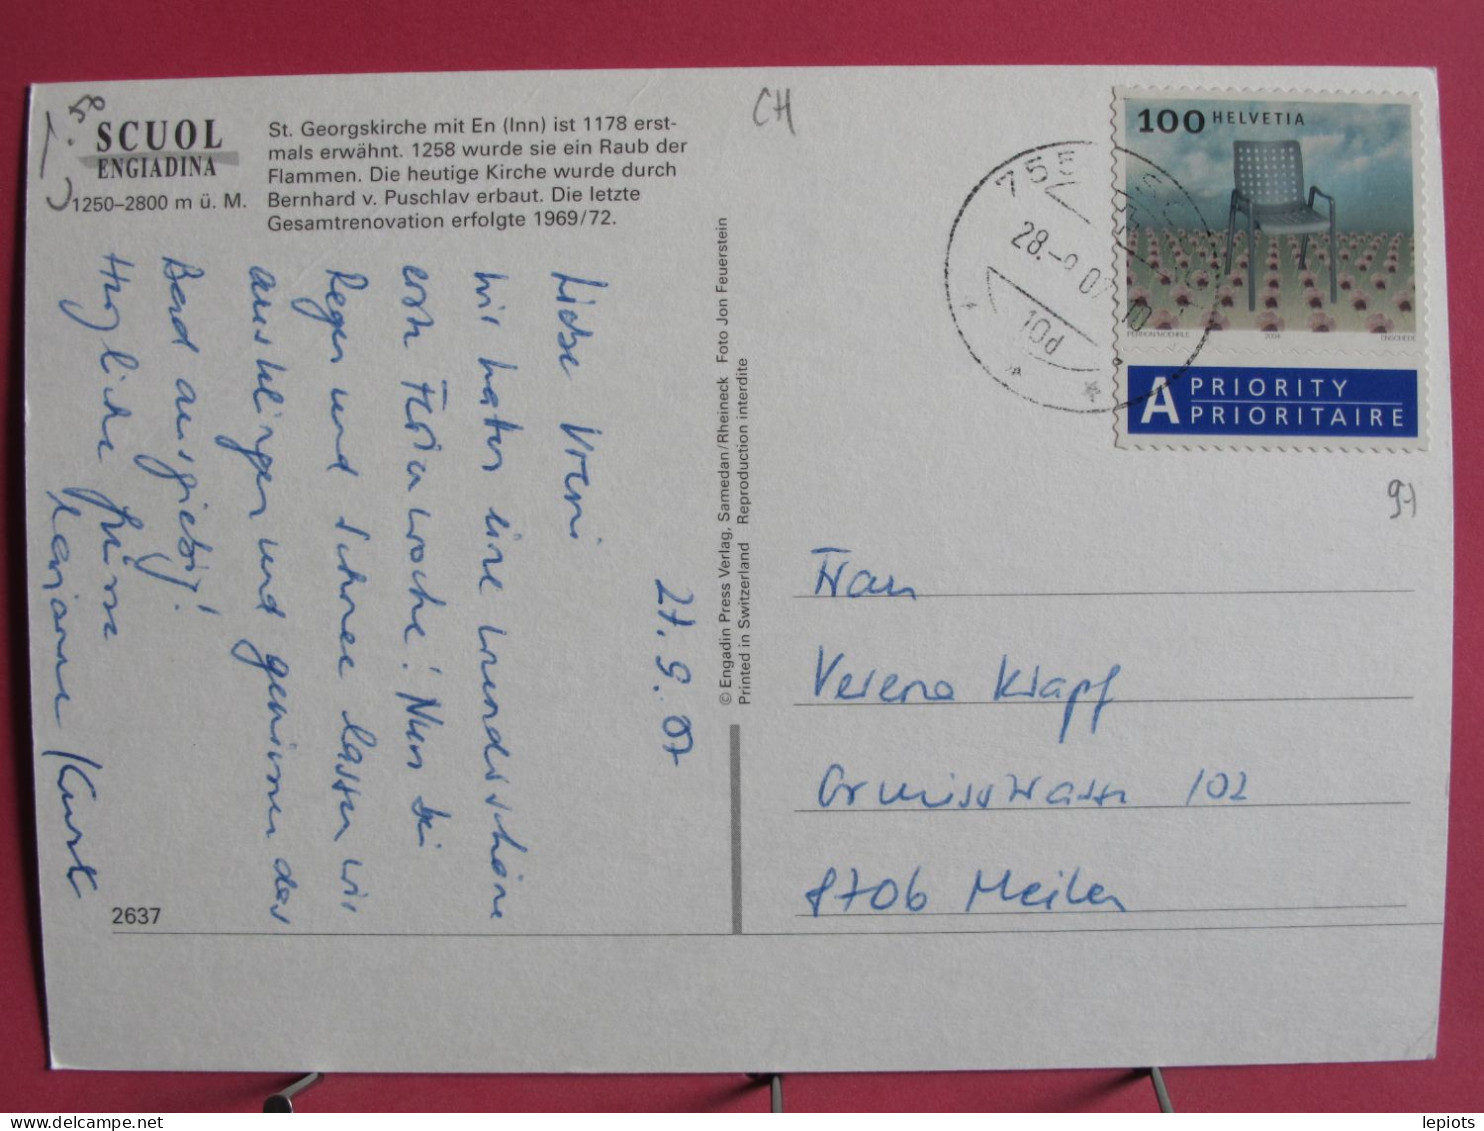 SCUOL
ENGIADINA
1250–2800 m ü. M.
St. Georgskirche mit En (Inn) ist 1178 erst-
mals erwähnt. 1258 wurde sie ein Raub der
Flammen. Die heutige Kirche wurde durch
Bernhard v. Puschlav erbaut. Die letzte
Gesamtrenovation erfolgte 1969/72.
CH
100 HELVETIA
2004
ENSCHEDE
A PRIORITY
PRIORITAIRE
28.-9.07
10d
27.9.07
Liebe Vreni
wir hatten eine wunderschöne
erste Ferienwoche! Nun bei
Regen und Schnee lassen wir
ausklingen und geniessen das
Bad ausgiebig!
Herzliche Grüsse
Marianne / Kurt
© Engadin Press Verlag, Samedan/Rheineck Foto Jon Feuerstein
Printed in Switzerland Reproduction interdite
Frau
Verena Klapf
Ormisstrasse 102
8706 Meilen
2637
delcampe.net
lepiots